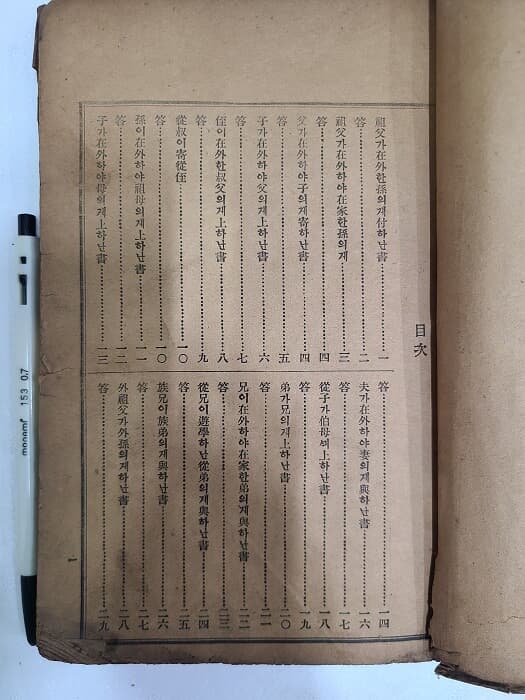 目次
祖父가在外한孫의게付하난書……一
答……二
祖父가在外하야在家한孫의게……三
答……四
父가在外하야子의게寄하난書……四
答……五
子가在外하야父의게上하난書……六
答……七
侄이在外한叔父의게上하난書……八
答……九
從叔이寄從侄……一〇
答……一〇
孫이在外하야祖母의게上하난書……一一
答……一二
子가在外하야母의게上하난書……一三
答……一四
夫가在外하야妻의게與하난書……一六
答……一七
從子가伯母ᄭᅦ上하난書……一八
答……一九
弟가兄의게上하난書……二〇
答……二一
兄이在外하야在家한弟의게與하난書……二二
答……二三
從兄이遊學하난從弟의게與하난書……二四
答……二五
族兄이族弟의게與하난書……二六
答……二七
外祖父가外孫의게하난書……二八
答……二九
一
monami 153 0.7